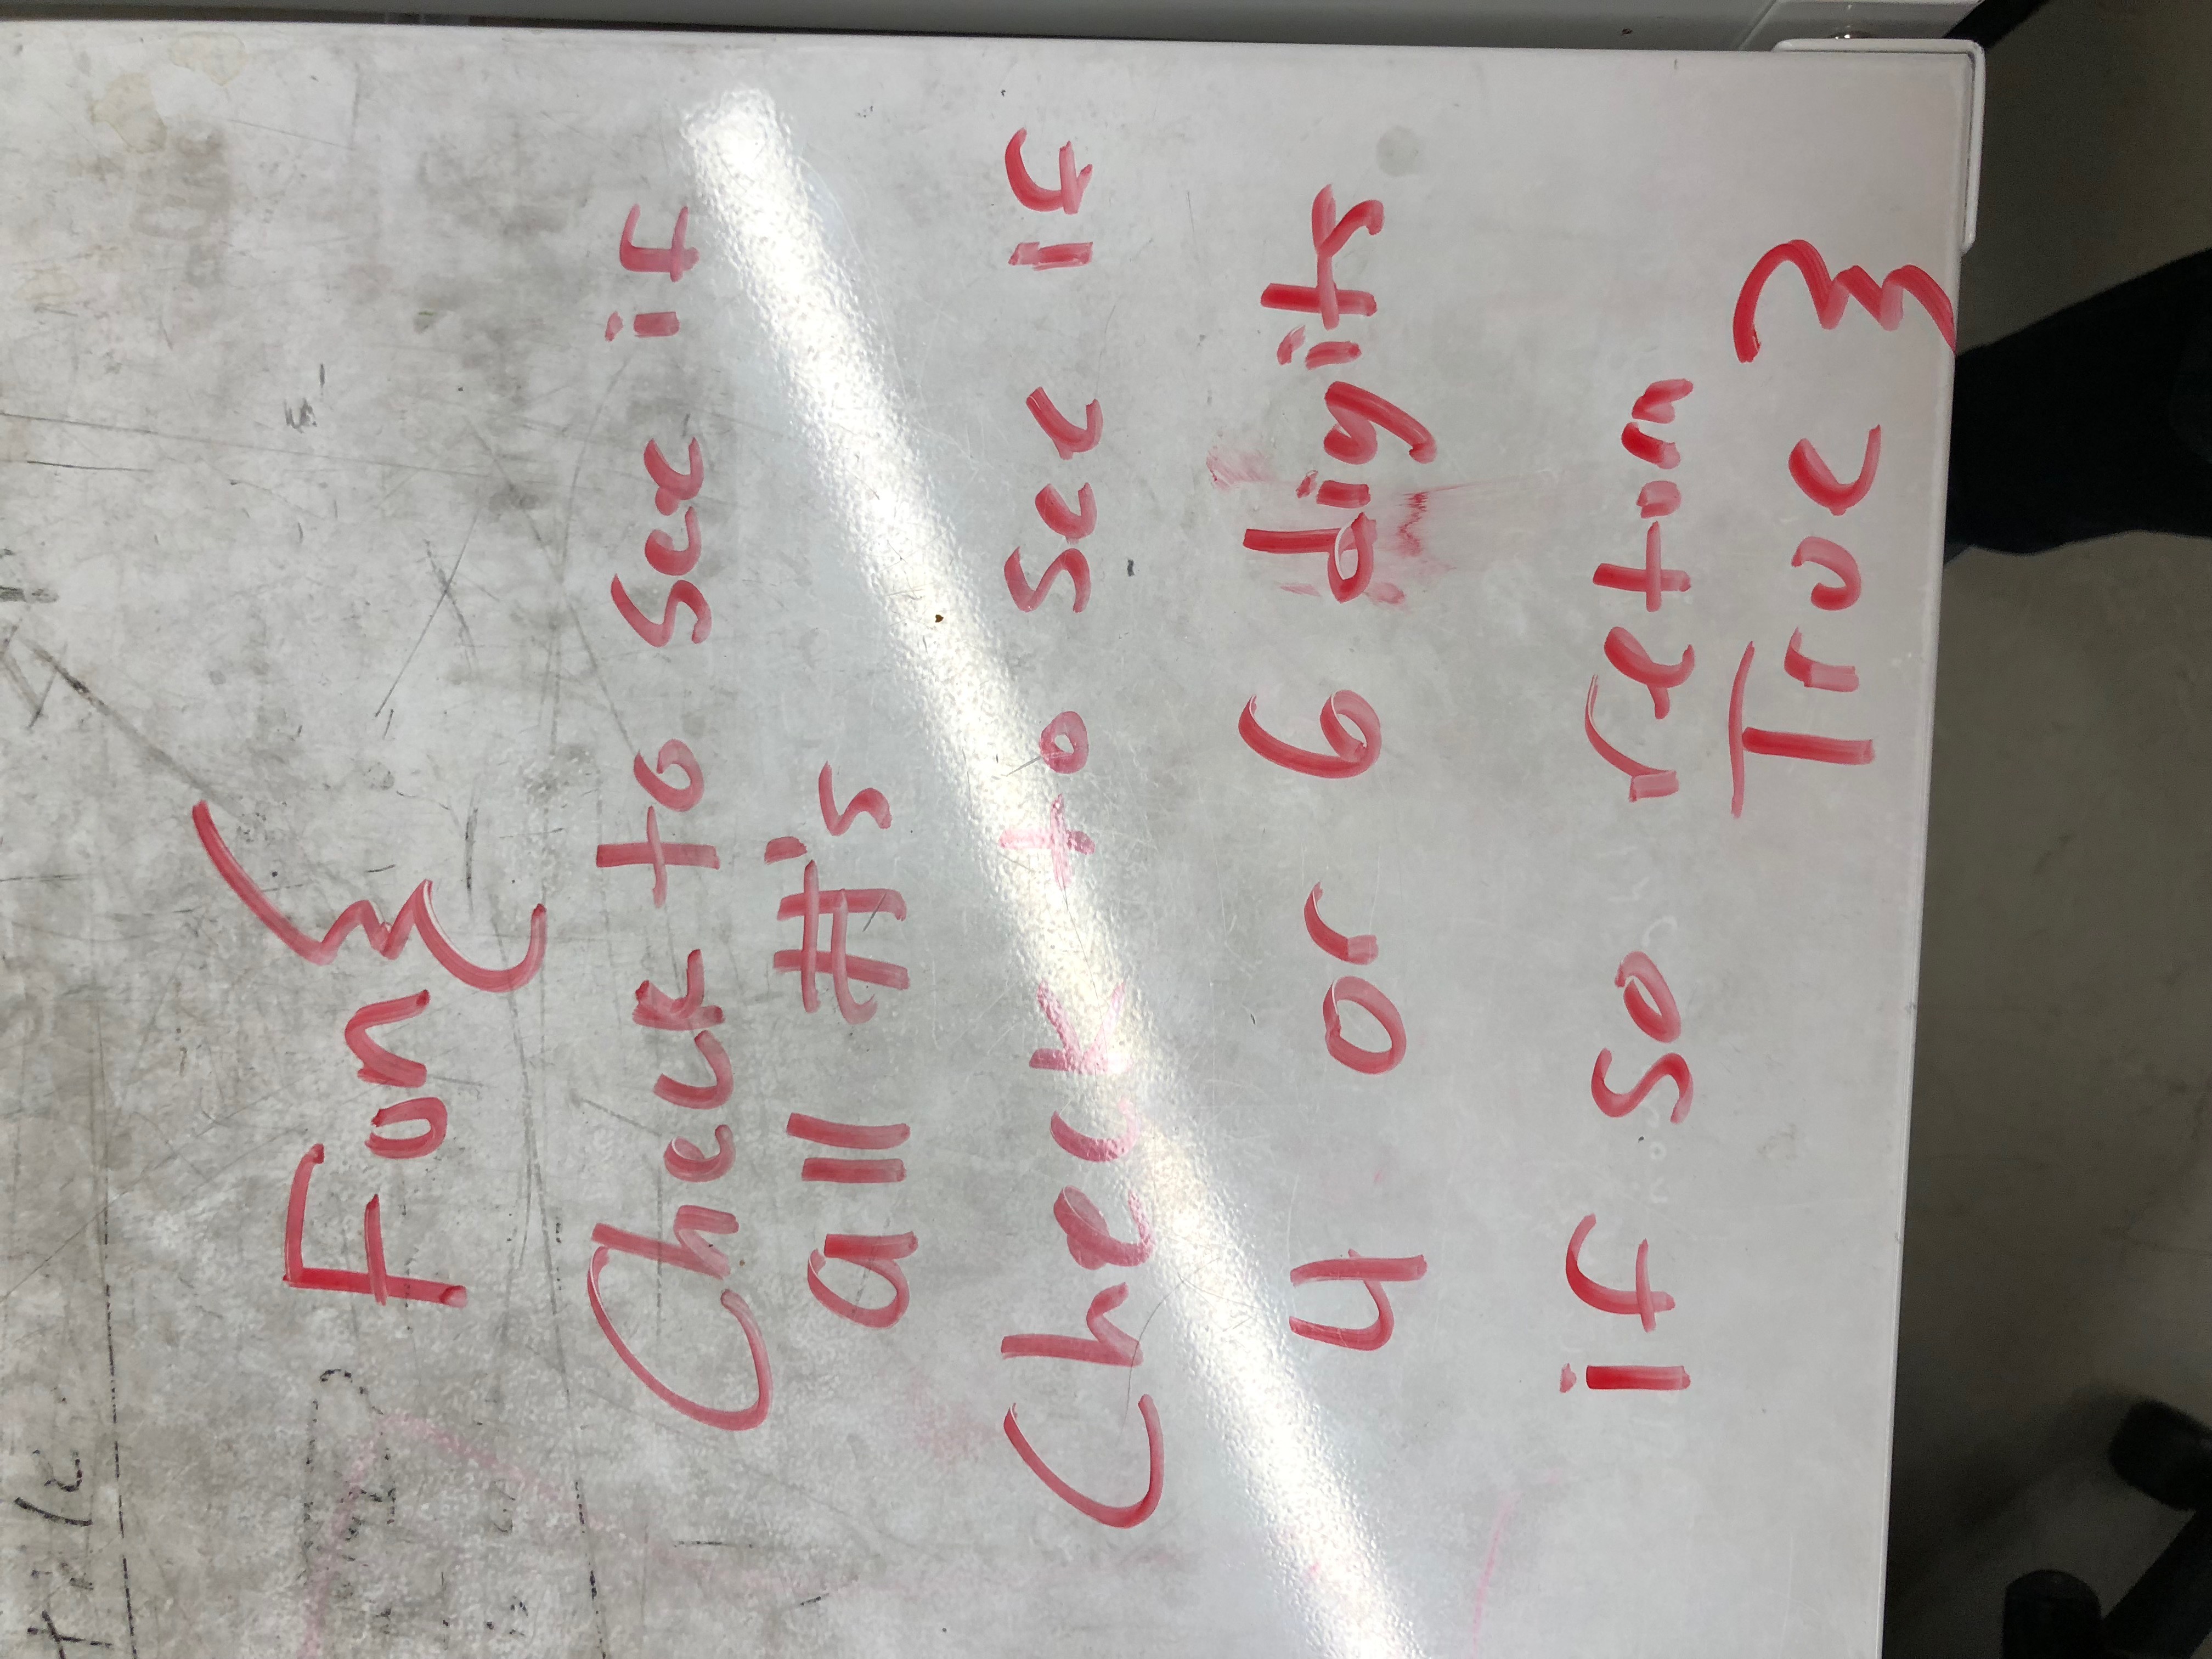 Fun{
Check to see if
all #'s
Check to see if
4 or 6 digits
if so return
True}